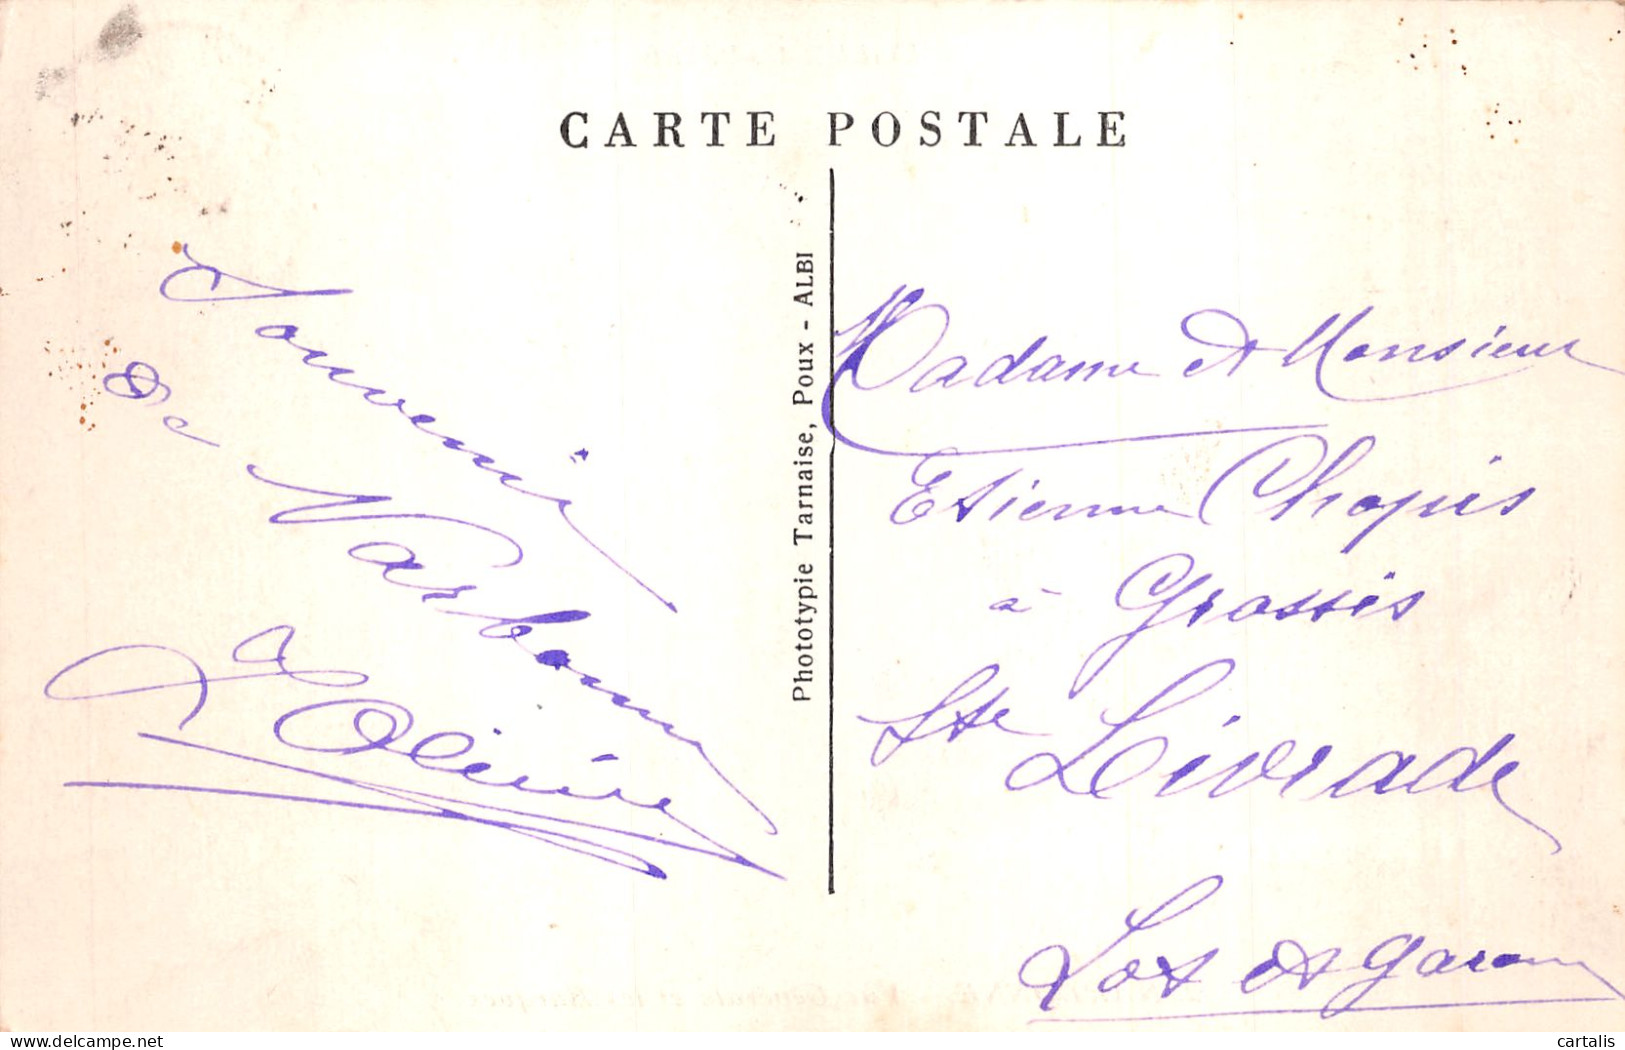 CARTE POSTALE
Souvenir
de Narbonne
Olivier
Phototypie Tarnaise, Poux - ALBI
Madame et Monsieur
Etienne Chopis
à Grassies
Ste Livrade
Lot et Garonne
delcampe.net
cartalis